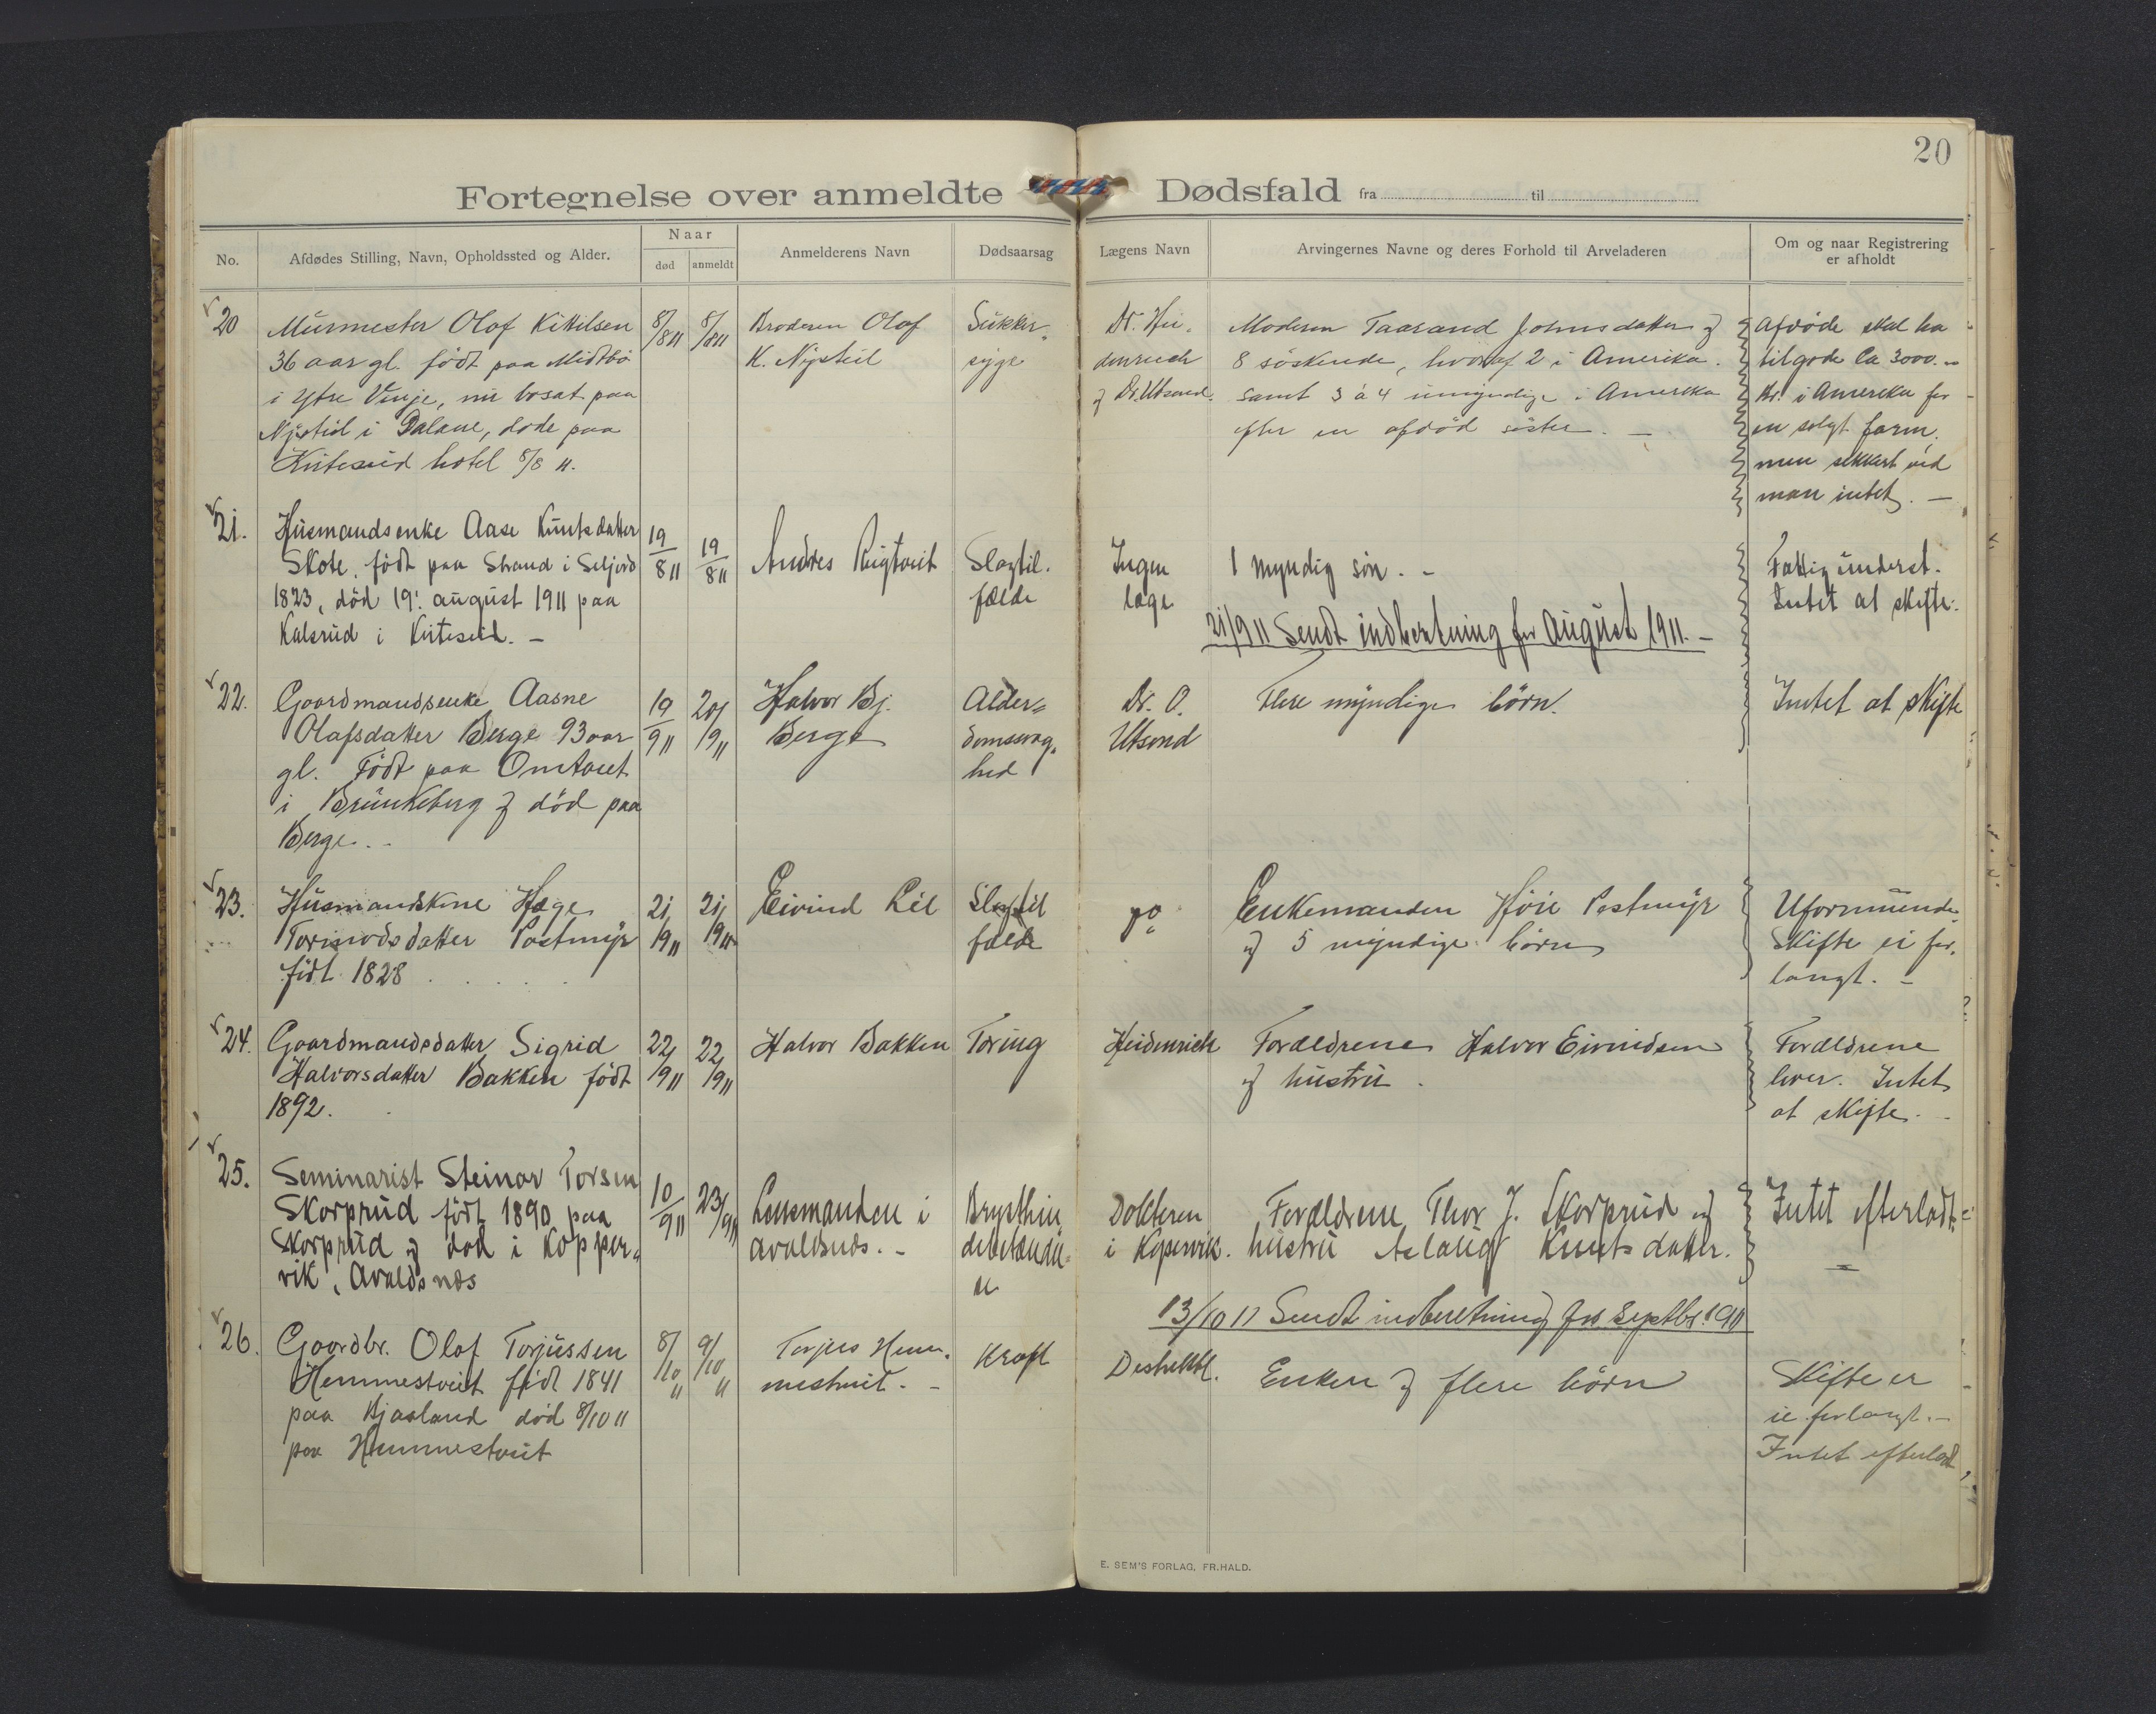 20
Fortegnelse over anmeldte Dødsfald fra til
No.
Afdødes Stilling, Navn, Opholdssted og Alder.
Naar
død
anmeldt
Anmelderens Navn
Dødsaarsag
Lægens Navn
Arvingernes Navne og deres Forhold til Arveladeren
Om og naar Registrering
er afholdt
20
Murmester Olaf Kittilsen
36 aar gl. født paa Midtbø
i Ytre Vinje, nu bosat paa
Nystøl i Dalane, døde paa
Kviteseid hotel 8/8 11.
8/8 11
8/8 11
Broderen Olaf
K. Nystøil
Sukker-
syge
Dr. Hei-
denreich
& Dr. Utsond.
Moderen Taarand Johnsdatter &
8 søskende, hvoraf 2 i Amerika.
samt 3 à 4 umyndige i Amerika
efter en afdød søster. —
Afdøde skal ha
tilgode Ca 3000.
Kr. i Amerika for
en solgt farm.
men sikkert ved
man intet. —
21.
Husmandsenke Aase Knutsdatter
Skote, født paa Strand i Seljord
1823, død 19. august 1911 paa
Kalsrud i Kviteseid. —
19/8 11
19/8 11
Andres Rugtveit
Slagtil-
fælde
Ingen
læge
1 myndig søn. -
Fattigunderst.
Intet at skifte.
21/9 11 Sendt indberetning for August 1911. —
22.
Gaardmandsenke Aasne
Olafsdatter Berge 93 aar
gl. Født paa Omtveit
i Brunkeberg & død paa
Berge. -
19/9 11
20/9 11
Halvor Bj.
Berge
Alder-
domssvag-
hed
Dr. O.
Utsond
Flere myndige børn.
Intet at skifte
23.
Husmandskone Hæge
Tormodsdatter Postmyr
født 1828
21/9 11
21/9 11
Eivind Lid
Slagtil
fælde
do
Enkemanden Høie Postmyr
& 5 myndige børn
Uformuende
Skifte ei for-
langt. -
24.
Gaardmandsdatter Sigrid
Halvorsdatter Bakken født
1892.
22/9 11
22/9 11
Halvor Bakken
Tæring
Heidenrich
Forældrene Halvor Eivindsen
& hustru.
Forældrene
lever. Intet
at skifte. -
25.
Seminarist Steinar Torsen
Skorprud født 1890 paa
Skorprud & død i Kopper-
vik, Avaldsnes
10/9 11
23/9 11
Lensmanden i
Avaldsnes. -
Brysthin
debetændel
se
Doktoren
i Kopervik.
Forældrene Thor J. Skorprud og
hustru Aslaug Knutsdatter.
Intet efterladt.
13/10 11 Sendt indberetning for Septbr. 1911
26.
Gaardbr. Olaf Torjussen
Hemmestveit født 1841
paa Bjaaland død 8/10 11
paa Hemmestveit
8/10 11
9/10 11
Torjus Hem-
mestveit. -
Kræft
Enken & flere børn
Skifte er
ei forlangt. -
Intet efterladt
E. SEM'S FORLAG, FR.HALD.